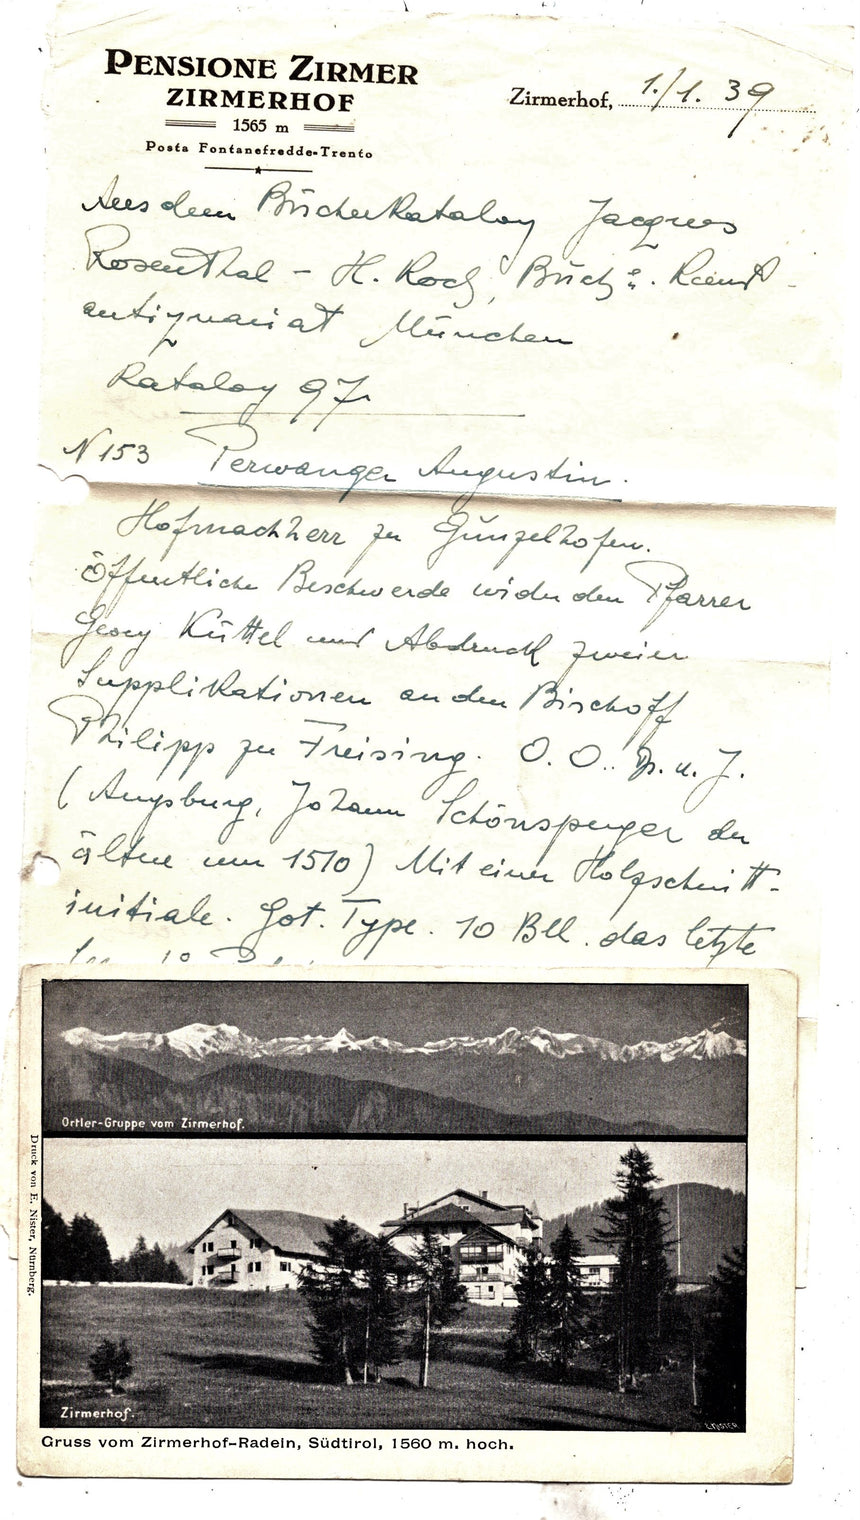 PENSIONE ZIRMER
ZIRMERHOF
1565 m
Posta Fontanefredde-Trento
Zirmerhof, 1./1. 39
Aus dem Bücherkatalog Jacques
Rosenthal - H. Koch, Buch u. Kunst-
antiquariat München
Katalog 97.
N 153 Perwanger Augustin.
Hofmachherr zu Günzelhofen.
Öffentliche Beschwerde wider den Pfarrer
Georg Küttel und Abdruck zweier
Supplikationen an den Bischoff
Philipp zu Freising. O. O. D. u. J.
(Augsburg, Johann Schönsperger der
ältere um 1510) Mit einer Holzschnitt-
initiale. Got. Type. 10 Bll. das letzte
Ortler-Gruppe vom Zirmerhof.
Druck von E. Nister, Nürnberg.
Zirmerhof.
E.NISTER
Gruss vom Zirmerhof-Radein, Südtirol, 1560 m. hoch.